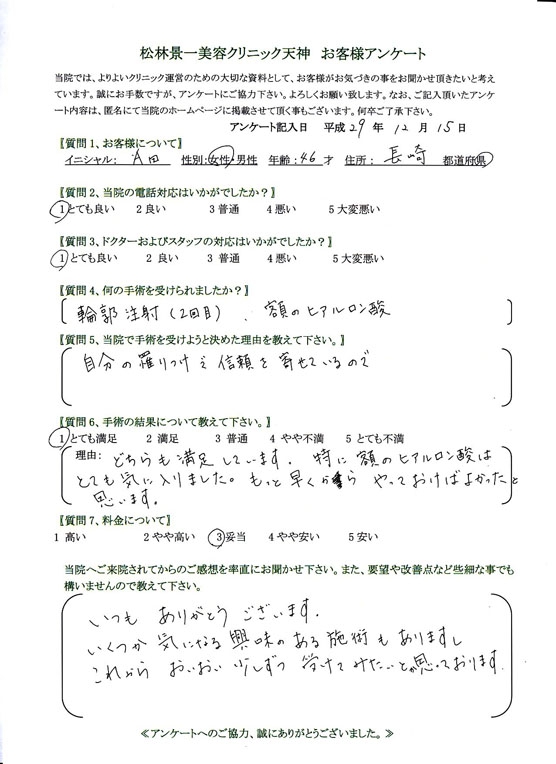 松林景一美容クリニック天神 お客様アンケート
当院では、よりよいクリニック運営のための大切な資料として、お客様がお気づきの事をお聞かせ頂きたいと考え
ています。誠にお手数ですが、アンケートにご協力下さい。よろしくお願い致します。なお、ご記入頂いたアンケ
ート内容は、匿名にて当院のホームページに掲載させて頂く事もございます。何卒ご了承下さい。
アンケート記入日 平成29年 12月 15日
【質問1、お客様について】
イニシャル: A田 性別:女性・男性 年齢:46才 住所: 長崎 都道府県
【質問2、当院の電話対応はいかがでしたか?】
1とても良い 2良い 3普通 4悪い 5大変悪い
【質問3、ドクターおよびスタッフの対応はいかがでしたか?】
1とても良い 2良い 3普通 4悪い 5大変悪い
【質問4、何の手術を受けられましたか?】
輪郭注射(2回目)、額のヒアルロン酸
【質問5、当院で手術を受けようと決めた理由を教えて下さい。】
自分の 信頼を寄せているので
【質問6、手術の結果について教えて下さい。】
1とても満足 2満足 3普通 4やや不満 5とても不満
理由: どちらも満足しています。特に額のヒアルロン酸は
とても気に入りました。もっと早くから やっておけばよかったと
思います。
【質問7、料金について】
1高い 2やや高い 3妥当 4やや安い 5安い
当院へご来院されてからのご感想を率直にお聞かせ下さい。また、要望や改善点など些細な事でも
構いませんので教えて下さい。
いつも ありがとう ございます.
いくつか 気になる 興味のある施術もありますし
これから おいおい 少しずつ 受けてみたいと思っております.
≪アンケートへのご協力、誠にありがとうございました。≫